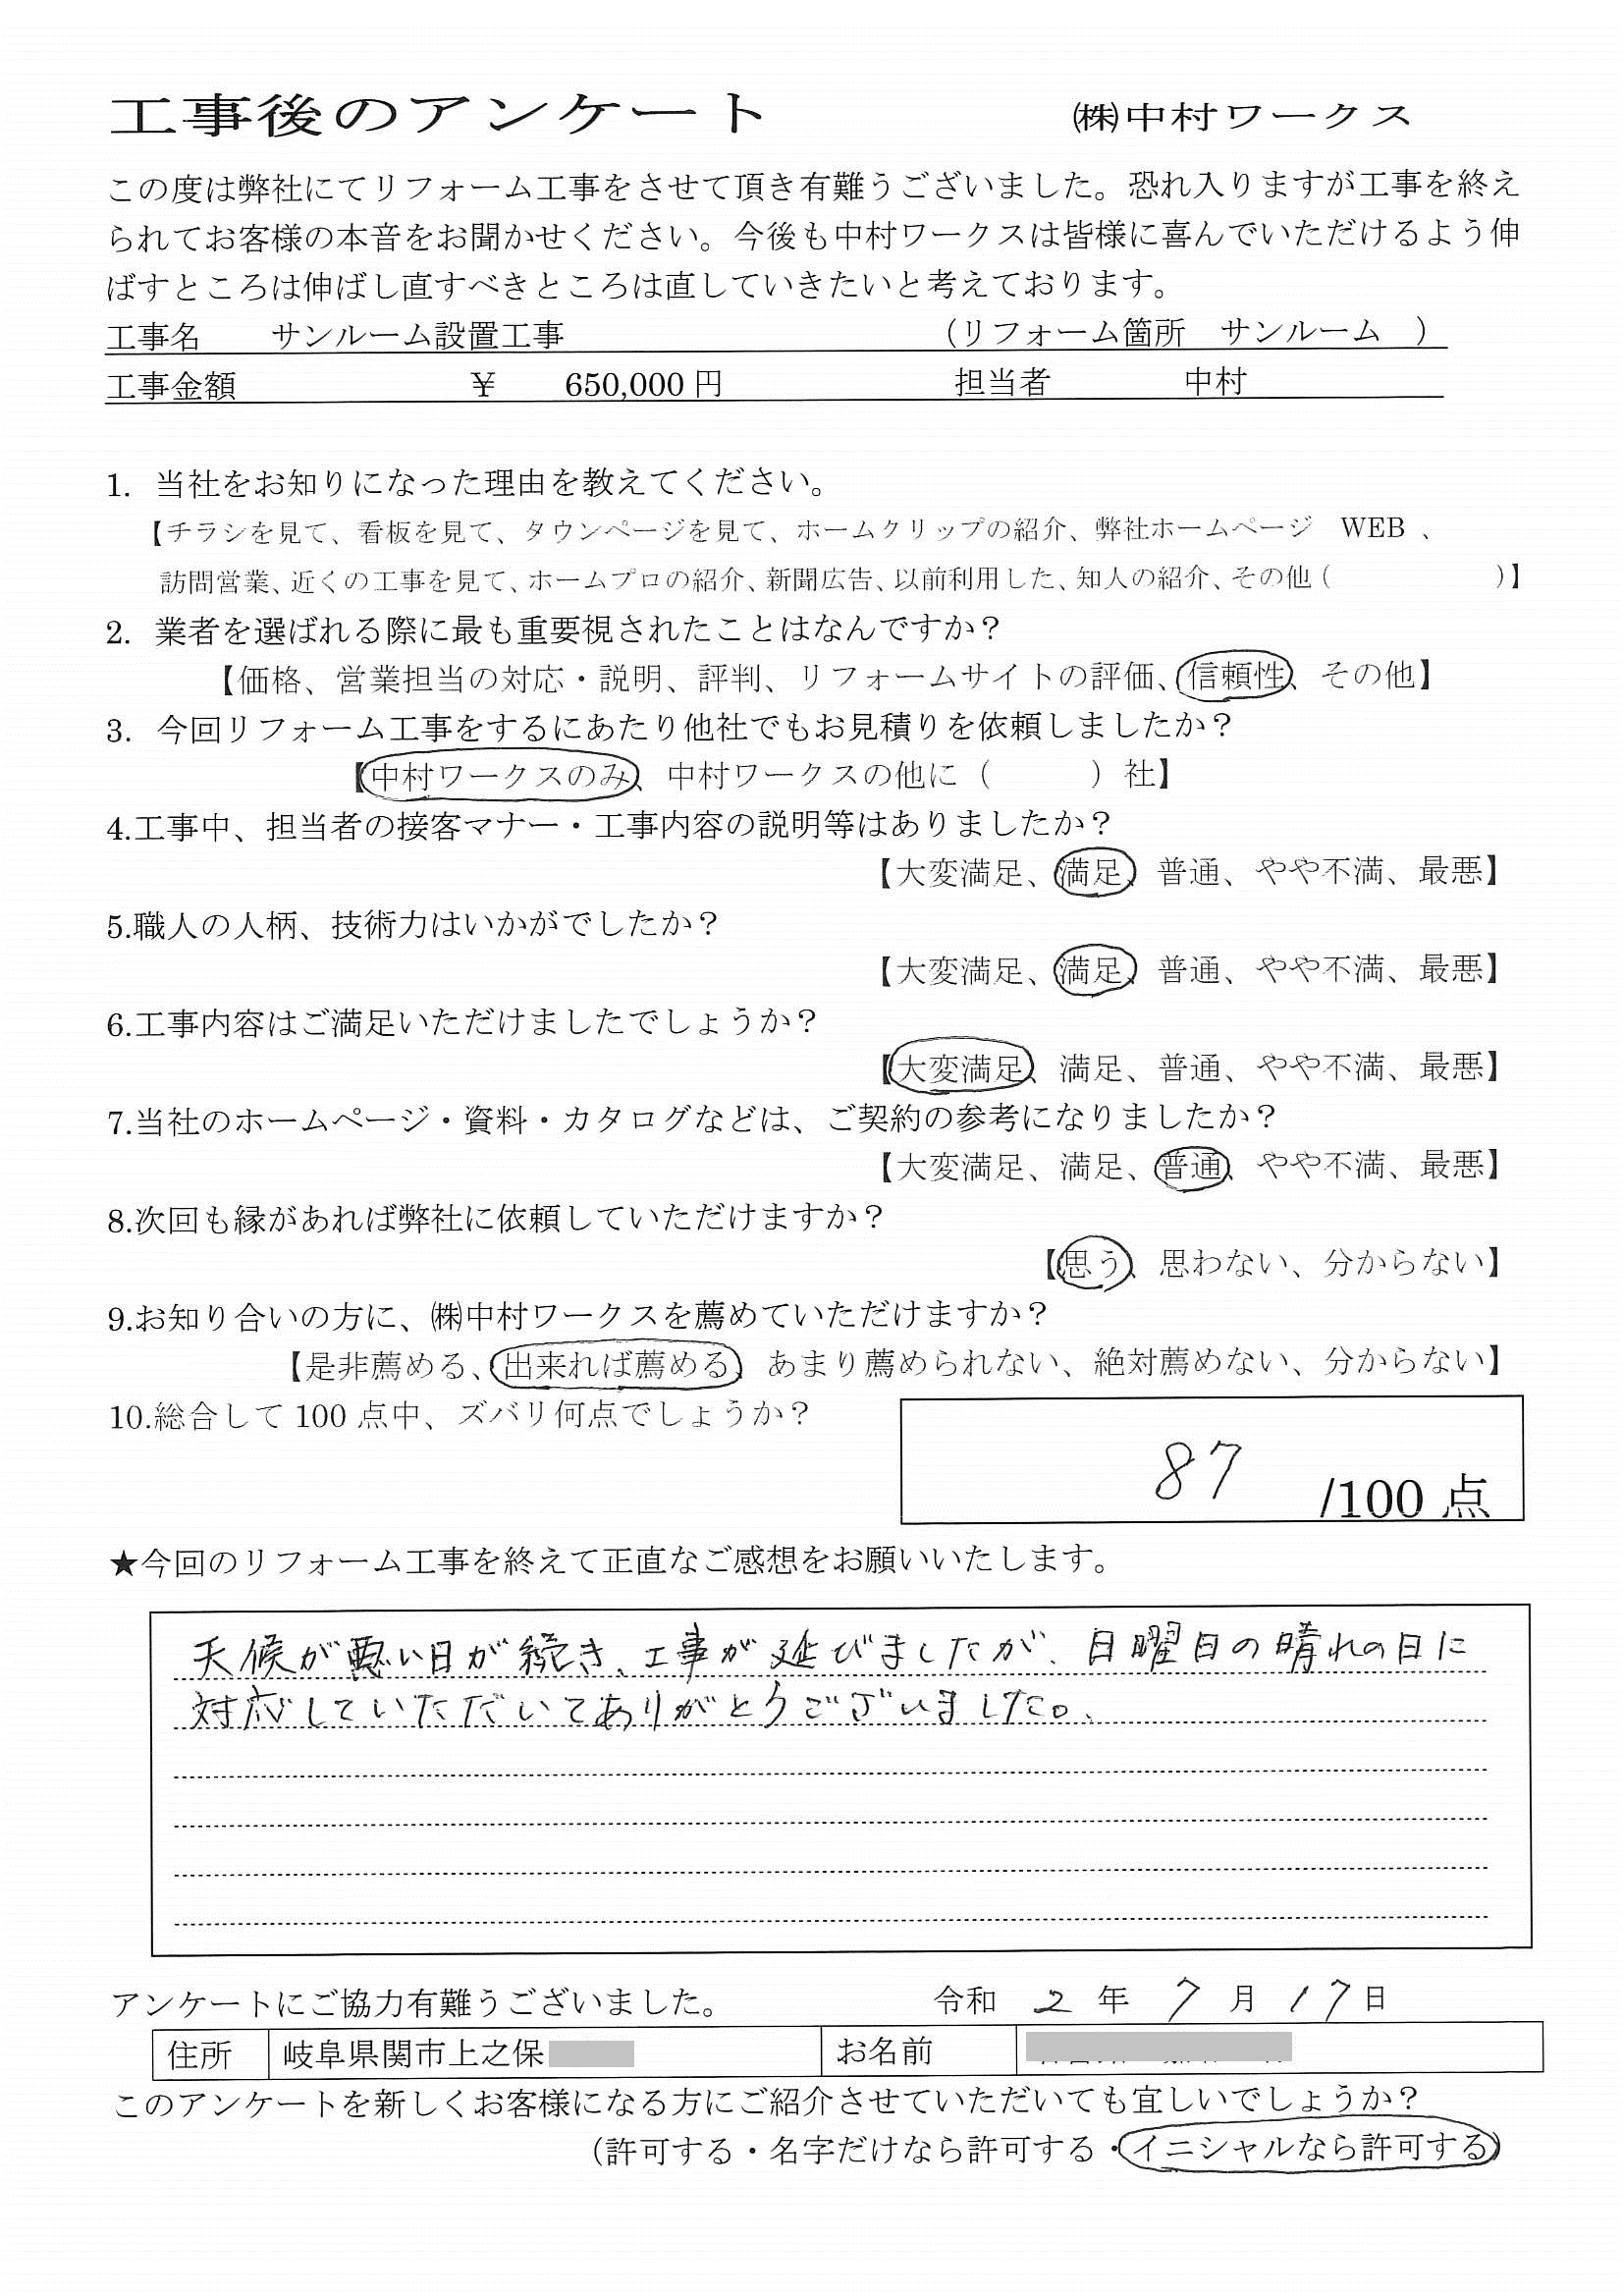 工事後のアンケート　㈱中村ワークス
この度は弊社にてリフォーム工事をさせて頂き有難うございました。恐れ入りますが工事を終え
られてお客様の本音をお聞かせください。今後も中村ワークスは皆様に喜んでいただけるよう伸
ばすところは伸ばし直すべきところは直していきたいと考えております。
工事名　サンルーム設置工事　（リフォーム箇所　サンルーム　）
工事金額　￥　650,000 円　担当者　中村
1.　当社をお知りになった理由を教えてください。
【チラシを見て、看板を見て、タウンページを見て、ホームクリップの紹介、弊社ホームページ　WEB 、
訪問営業、近くの工事を見て、ホームプロの紹介、新聞広告、以前利用した、知人の紹介、その他（　　　　　）】
2.　業者を選ばれる際に最も重要視されたことはなんですか？
【価格、営業担当の対応・説明、評判、リフォームサイトの評価、信頼性、その他】
3.　今回リフォーム工事をするにあたり他社でもお見積りを依頼しましたか？
【中村ワークスのみ、中村ワークスの他に（　　　）社】
4.工事中、担当者の接客マナー・工事内容の説明等はありましたか？
【大変満足、満足、普通、やや不満、最悪】
5.職人の人柄、技術力はいかがでしたか？
【大変満足、満足、普通、やや不満、最悪】
6.工事内容はご満足いただけましたでしょうか？
【大変満足、満足、普通、やや不満、最悪】
7.当社のホームページ・資料・カタログなどは、ご契約の参考になりましたか？
【大変満足、満足、普通、やや不満、最悪】
8.次回も縁があれば弊社に依頼していただけますか？
【思う、思わない、分からない】
9.お知り合いの方に、㈱中村ワークスを薦めていただけますか？
【是非薦める、出来れば薦める、あまり薦められない、絶対薦めない、分からない】
10.総合して 100 点中、ズバリ何点でしょうか？
87 /100 点
★今回のリフォーム工事を終えて正直なご感想をお願いいたします。
天候が悪い日が続き、工事が延びましたが、日曜日の晴れの日に
対応していただいてありがとうございました。
アンケートにご協力有難うございました。　令和 2 年 7 月 17 日
住所　岐阜県関市上之保　お名前
このアンケートを新しくお客様になる方にご紹介させていただいても宜しいでしょうか？
（許可する・名字だけなら許可する・イニシャルなら許可する）